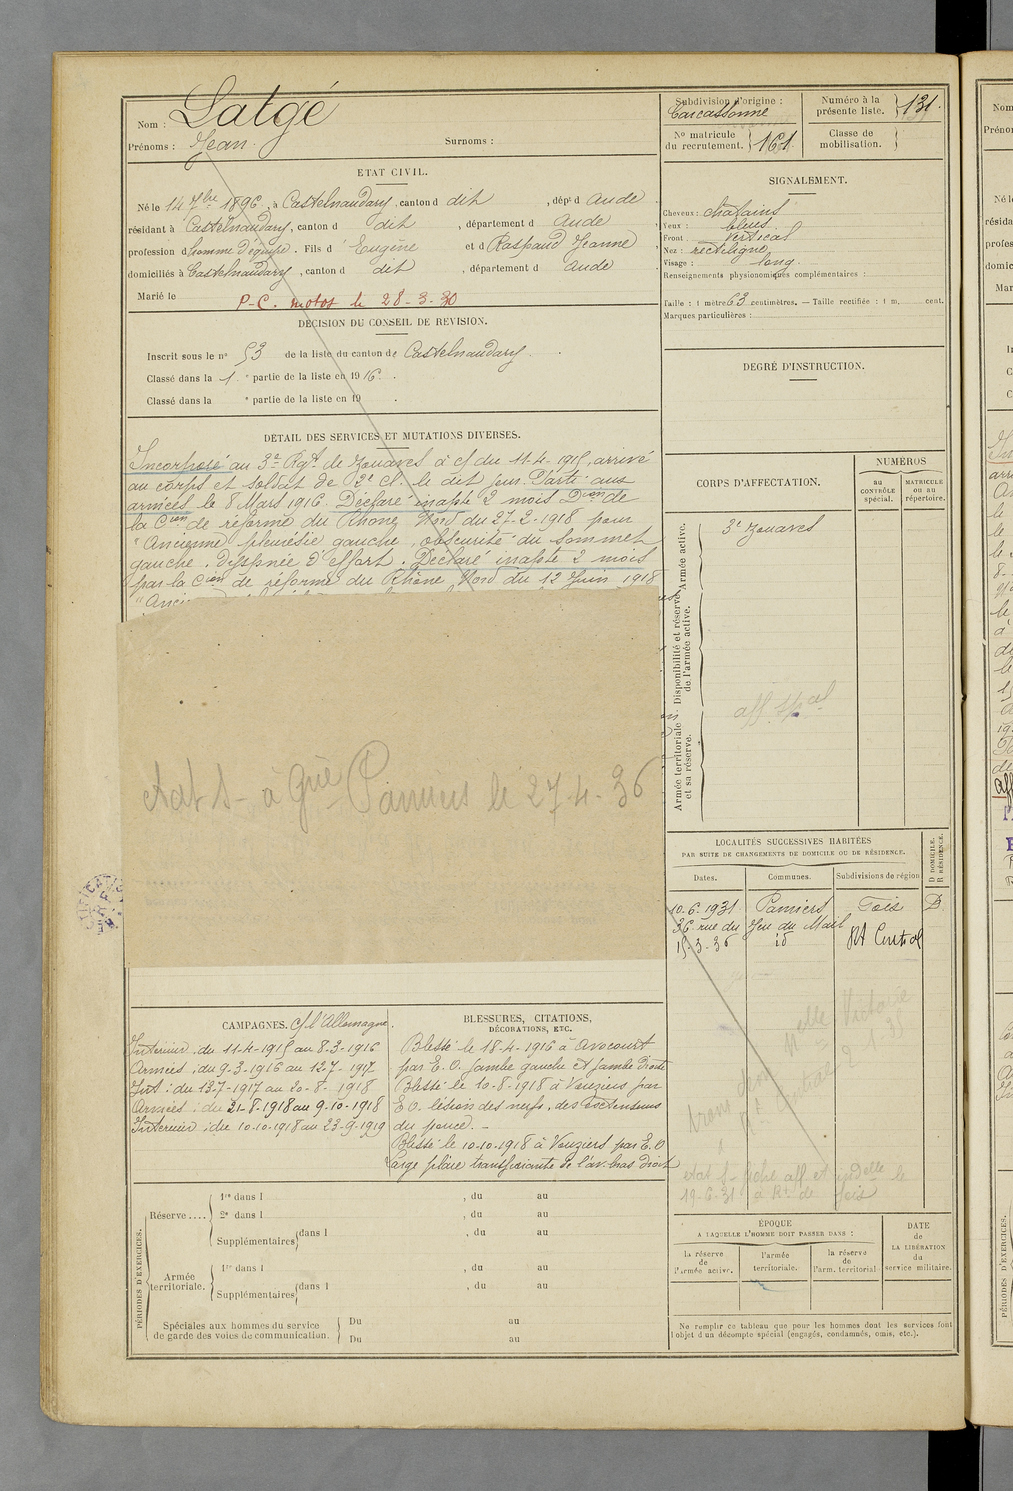 Nom : Latgé
Prénoms : Jean. Surnoms :
ETAT CIVIL.
Né le 14 7bre 1896, à Castelnaudary, canton d dit, dépt d Aude
résidant à Castelnaudary, canton d dit, département d Aude
profession d'homme d'équipe. Fils d' Eugène et d Raspaud Jeanne
domiciliés à Castelnaudary, canton d dit, département d Aude
Marié le
P.C. motos le 28-3-30
DÉCISION DU CONSEIL DE REVISION.
Inscrit sous le n° 53 de la liste du canton de Castelnaudary.
Classé dans la 1 e partie de la liste en 1916.
Classé dans la e partie de la liste en 19 .
DÉTAIL DES SERVICES ET MUTATIONS DIVERSES.
Incorporé au 3e Rgt de Zouaves à cf du 11-4-1915, arrivé
au corps et soldat de 2e cl. le dit jour. Parti aux
armées le 8 Mars 1916. Déclaré inapte 2 mois Don de
la Cion de réforme du Rhône Nord du 27-2-1918 pour
"Ancienne pleurésie gauche, obscurité du sommet
gauche. dyspnée d'effort. Déclaré inapte 2 mois
par la Cion de réforme du Rhône Nord du 12 Juin 1918
"Anci
état S- à Pamiers le 27-4-36
CAMPAGNES. C/ l'Allemagne.
Intérieur : du 11-4-1915 au 8-3-1916
Armées : du 9-3-1916 au 12-7-1917
Int. : du 13-7-1917 au 20-8-1918
Armées : du 21-8-1918 au 9-10-1918
Intérieur : du 10-10-1918 au 23-9-1919
BLESSURES, CITATIONS,
DÉCORATIONS, ETC.
Blessé le 18-4-1916 à Avocourt
par E.O. jambe gauche et jambe droite
Blessé le 10-8-1918 à Vouziers par
E.O. lésion des nerfs, des extenseurs
du pouce. -
Blessé le 10-10-1918 à Vouziers par E.O.
Large plaie transfixiante de l'av. bras droit
PÉRIODES D'EXERCICES.
Réserve ....
1re dans l , du au
2e dans l , du au
Supplémentaires dans l , du au
Armée territoriale.
1re dans l , du au
Supplémentaires dans l , du au
Spéciales aux hommes du service
de garde des voies de communication.
Du au
Du au
Subdivision d'origine :
Carcassonne
Numéro à la
présente liste. 131.
N° matricule
du recrutement. 161
Classe de
mobilisation.
SIGNALEMENT.
Cheveux : châtains
Yeux : bleus
Front : vertical
Nez : rectiligne
Visage : long.
Renseignements physionomiques complémentaires :
Taille : 1 mètre 63 centimètres. — Taille rectifiée : 1 m. cent.
Marques particulières :
DEGRÉ D'INSTRUCTION.
CORPS D'AFFECTATION.
NUMÉROS
au
CONTRÔLE
spécial.
MATRICULE
ou au
répertoire.
Armée active.
3e Zouaves
Disponibilité et réserve
de l'armée active.
aff. spal
Armée territoriale
et sa réserve.
LOCALITÉS SUCCESSIVES HABITÉES
PAR SUITE DE CHANGEMENTS DE DOMICILE OU DE RÉSIDENCE.
D DOMICILE.
R RÉSIDENCE.
Dates. Communes. Subdivisions de région
10-6-1931 Pamiers Foix D.
36 rue du Jeu du Mail
15-3-36 id Rt Central
état S- fiche aff. et le
19-6-31 à Rt. de Foix
ÉPOQUE
A LAQUELLE L'HOMME DOIT PASSER DANS :
la réserve
de
l'armée active.
l'armée
territoriale.
la réserve
de
l'arm. territorial
DATE
de
LA LIBÉRATION
du
service militaire.
Ne remplir ce tableau que pour les hommes dont les services font
l'objet d'un décompte spécial (engagés, condamnés, omis, etc.).